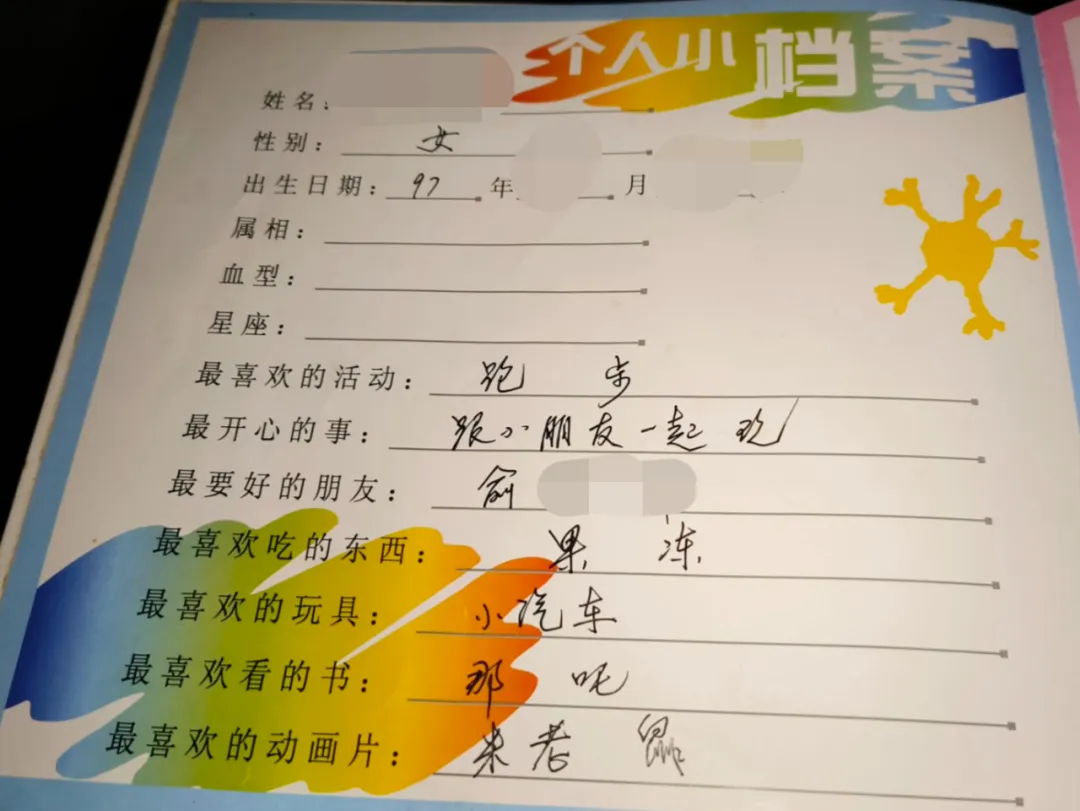 个人小档案
姓名:
性别: 女
出生日期: 97 年 月
属相:
血型:
星座:
最喜欢的活动: 跑步
最开心的事: 跟小朋友一起玩
最要好的朋友: 俞
最喜欢吃的东西: 果冻
最喜欢的玩具: 小汽车
最喜欢看的书: 那吒
最喜欢的动画片: 米老鼠